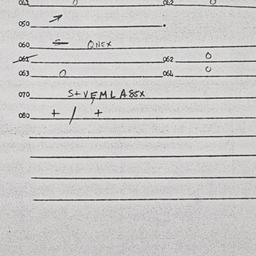 061 0 062 0
050
060 S QNEX
061 062 0
063 0 064 0
070 S+VEMLA85X
080 + / +